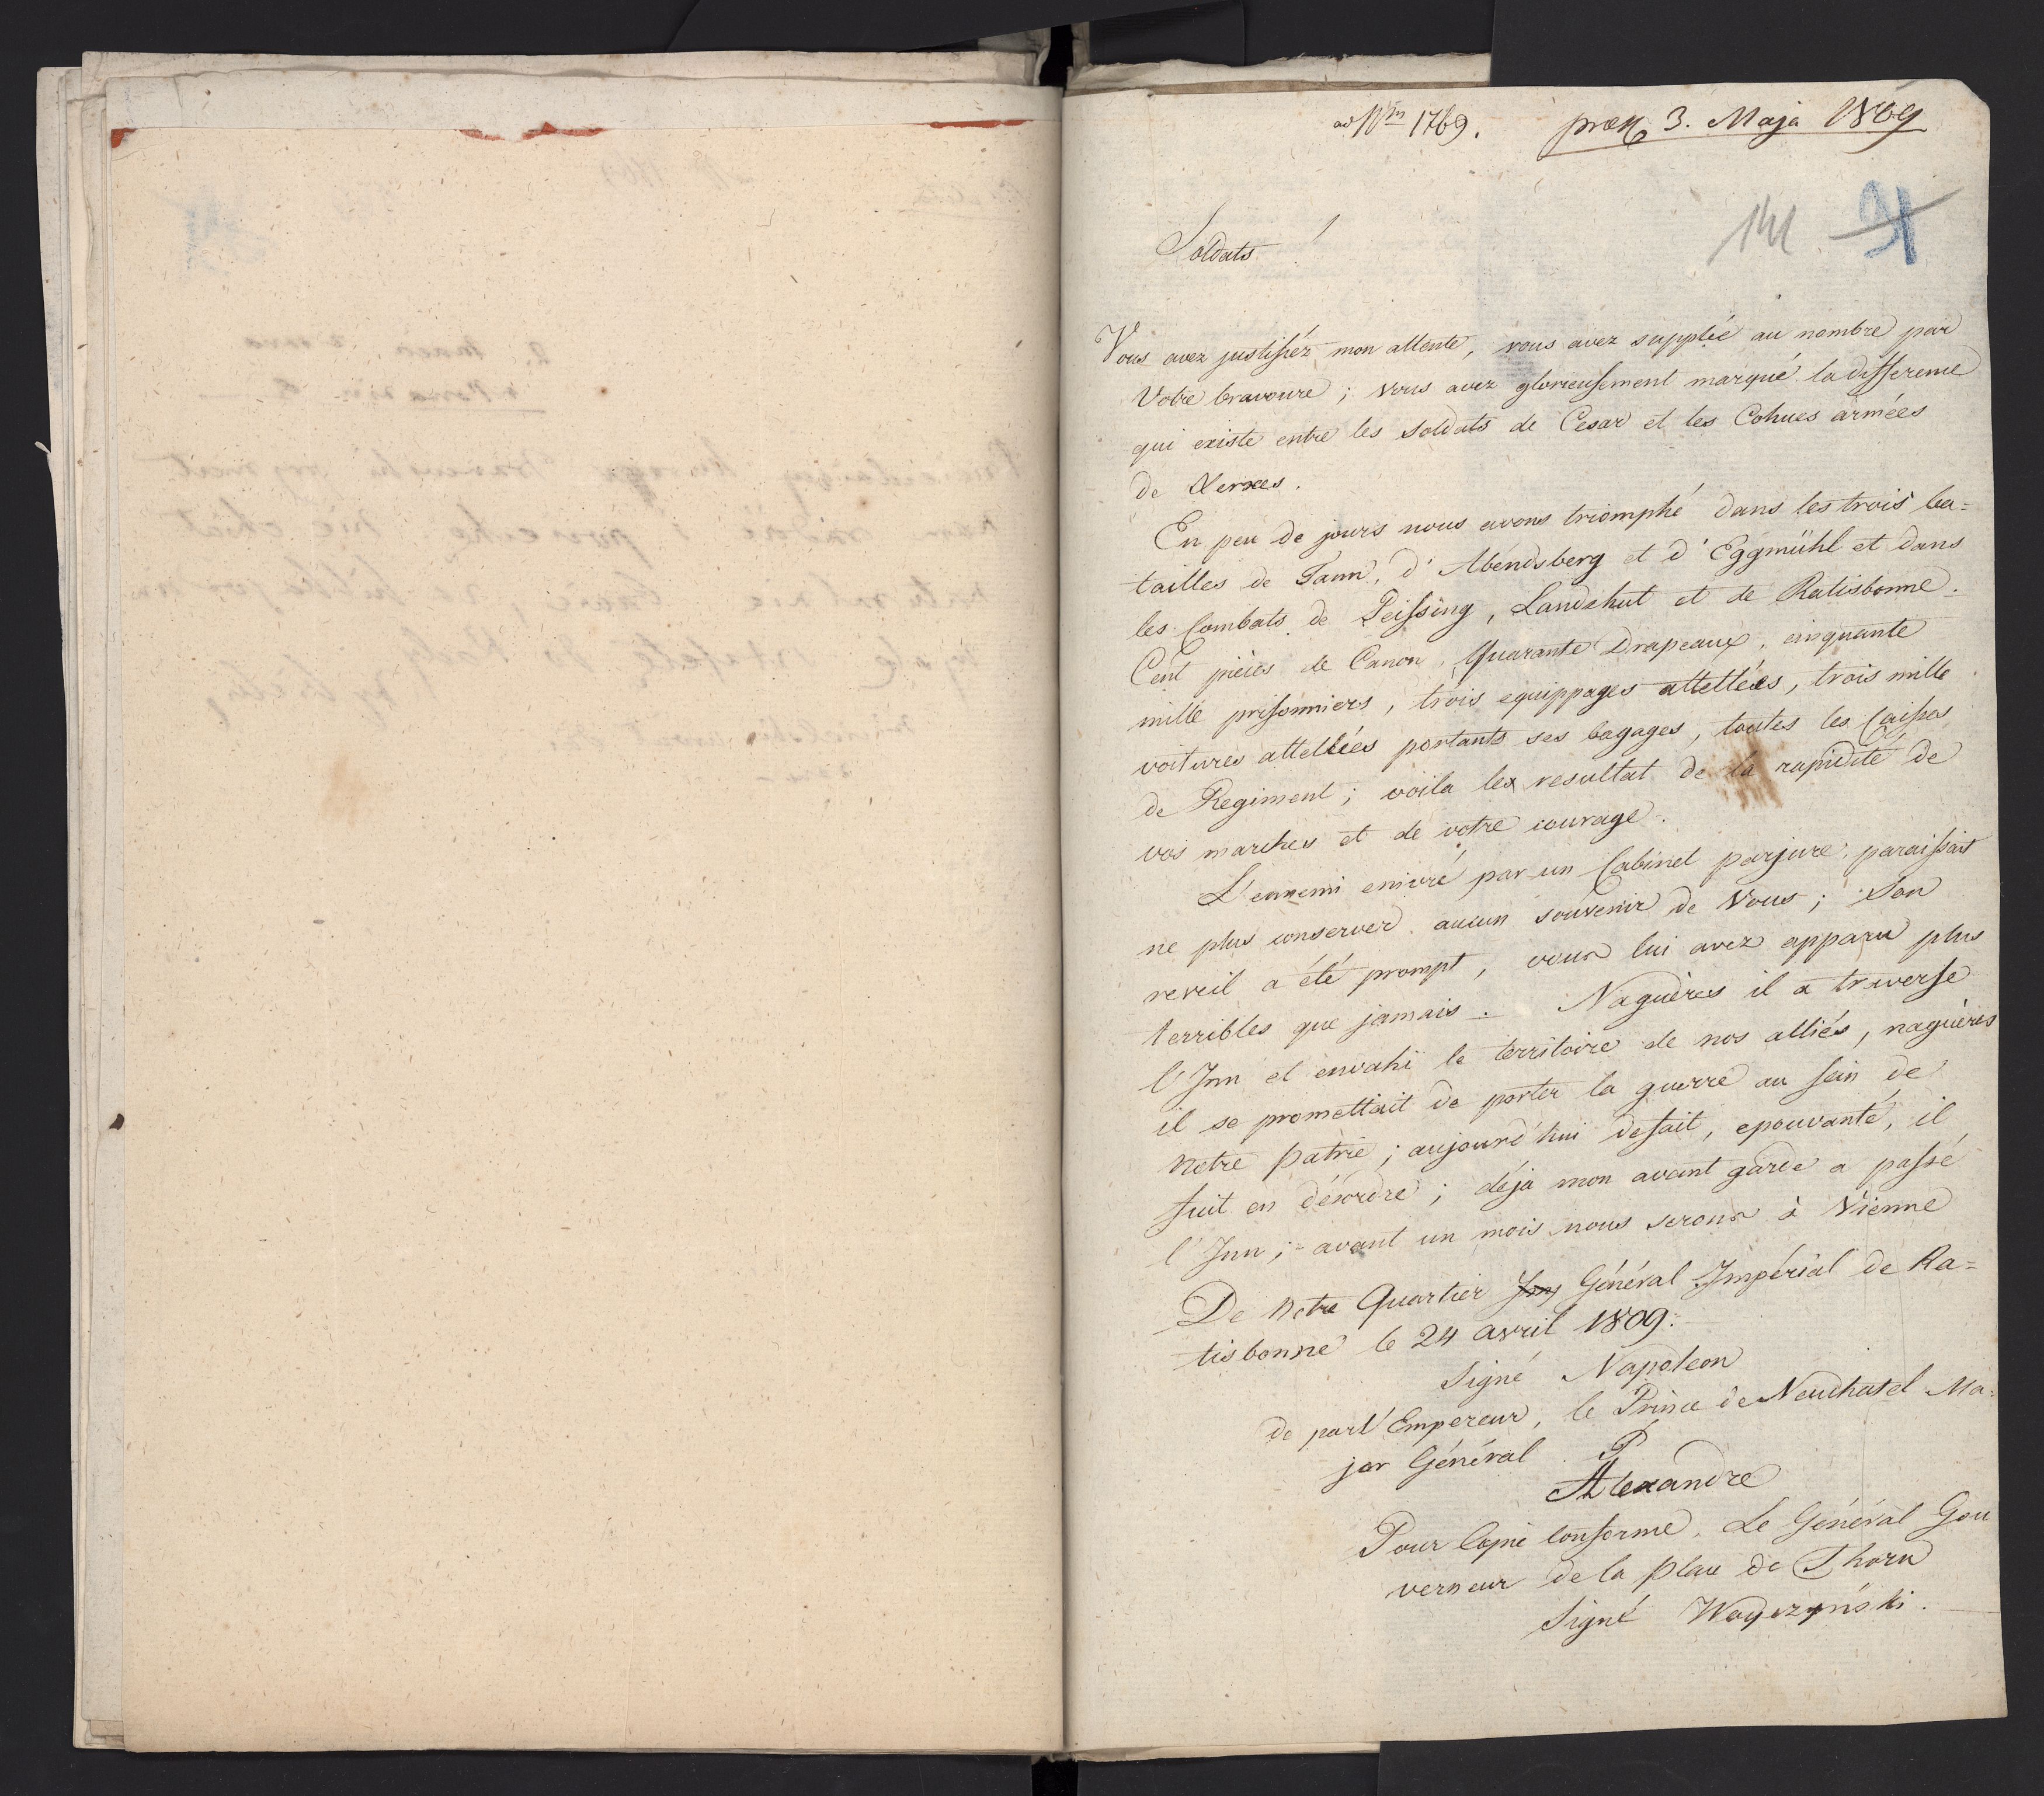 ad Nrm 1769. præs 3. Maja 1809
141 31
Soldats!
Vous avez justifiéz mon attente, vous avez supplée au nombre par
Votre bravoure; vous avez glorieusement marqué la difference
qui existe entre les soldats de Cesar et les Cohues armées
de Xerxes.
En peu de jours nous avons triomphé dans les trois ba=
tailles de Tann, d'Abendsberg et d'Eggmühl et dans
les Combats de Peissing, Landshut et de Ratisbonne.
Cent pièces de Canon, Quarante Drapeaux, cinquante
mille prisonniers, trois equippages attellées, trois mille
voitures attellées portants ses bagages, toutes les Caisses
de Regiment; voila les resultat de la rapidité de
vos marches et de votre courage.
L'ennemi enivré par un Cabinet parjure, paraissait
ne plus conserver aucun souvenir de Vous; Son
reveil a été prompt, vous lui avez apparu plus
terribles que jamais. Naguères il a traverse
l'Inn et envahi le territoire de nos alliés, naguères
il se promettait de porter la guerre au sein de
notre patrie; aujourd'hui defait, epouvanté, il
fuit en désordre; déja mon avant garde a passé
l'Inn; avant un mois nous serons à Vienne
De notre Quartier Général Impérial de Ra=
tisbonne le 24 avril 1809.
Signé Napoleon
de part l'Empereur, le Prince de Neuchatel Ma=
jor Général. P
Alexandre
Pour Copie conforme, Le Général Gou
verneur de la place de Thorn
Signé Woyczyński.